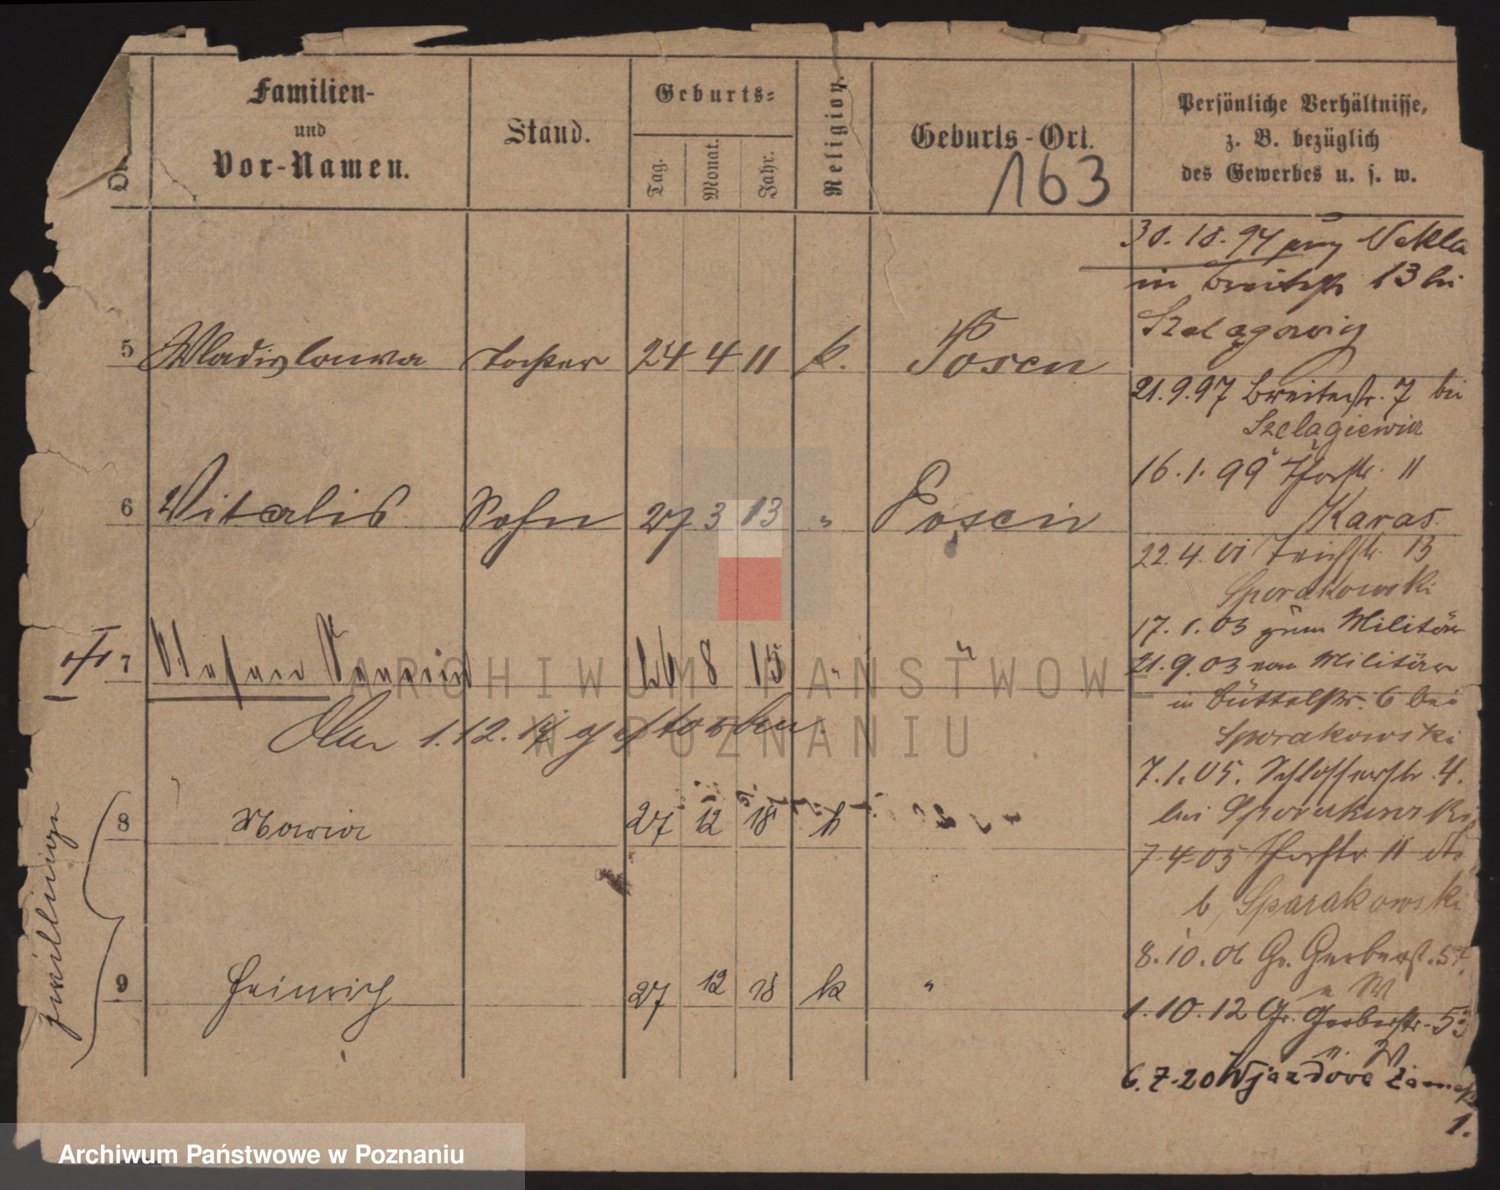 Familien-
und
Vor-Namen.
Stand.
Geburts-
Tag.
Monat.
Jahr.
Religion.
Geburts-Ort.
163
Persönliche Verhältnisse,
z. B. bezüglich
des Gewerbes u. s. w.
5 Wladislawa Tochter 24 4 11 k. Posen
6 Vitalis Sohn 27 3 13 " Posen
7 Stefan 26 8 15 " "
Am 1.12.17 gestorben.
8 Maria 27 12 18 k
9 Heinrich 27 12 18 k "
Zwillinge
30.10.97
in Breitestr 13 bei
21.9.97 Breitestr. 7 bei
Szelągiewicz
16.1.99 Thorstr. 11
Karas
22.4.01 Teichstr. 13
Sporakowski
17.1.03 zum Militär
21.9.03 vom Militär
in Büttelstr. 6 bei
Sporakowski
7.1.05. Schlosserstr. 4.
bei Sporakowski
7 4 05 Thorstr 11
b. Sparakowski
8.10.06 Gr. Gerberst. 57
1.10.12 Gr. Gerberstr. 53
6.7.20 Wjazdowa
1.
ARCHIWUM PAŃSTWOWE
W POZNANIU
Archiwum Państwowe w Poznaniu